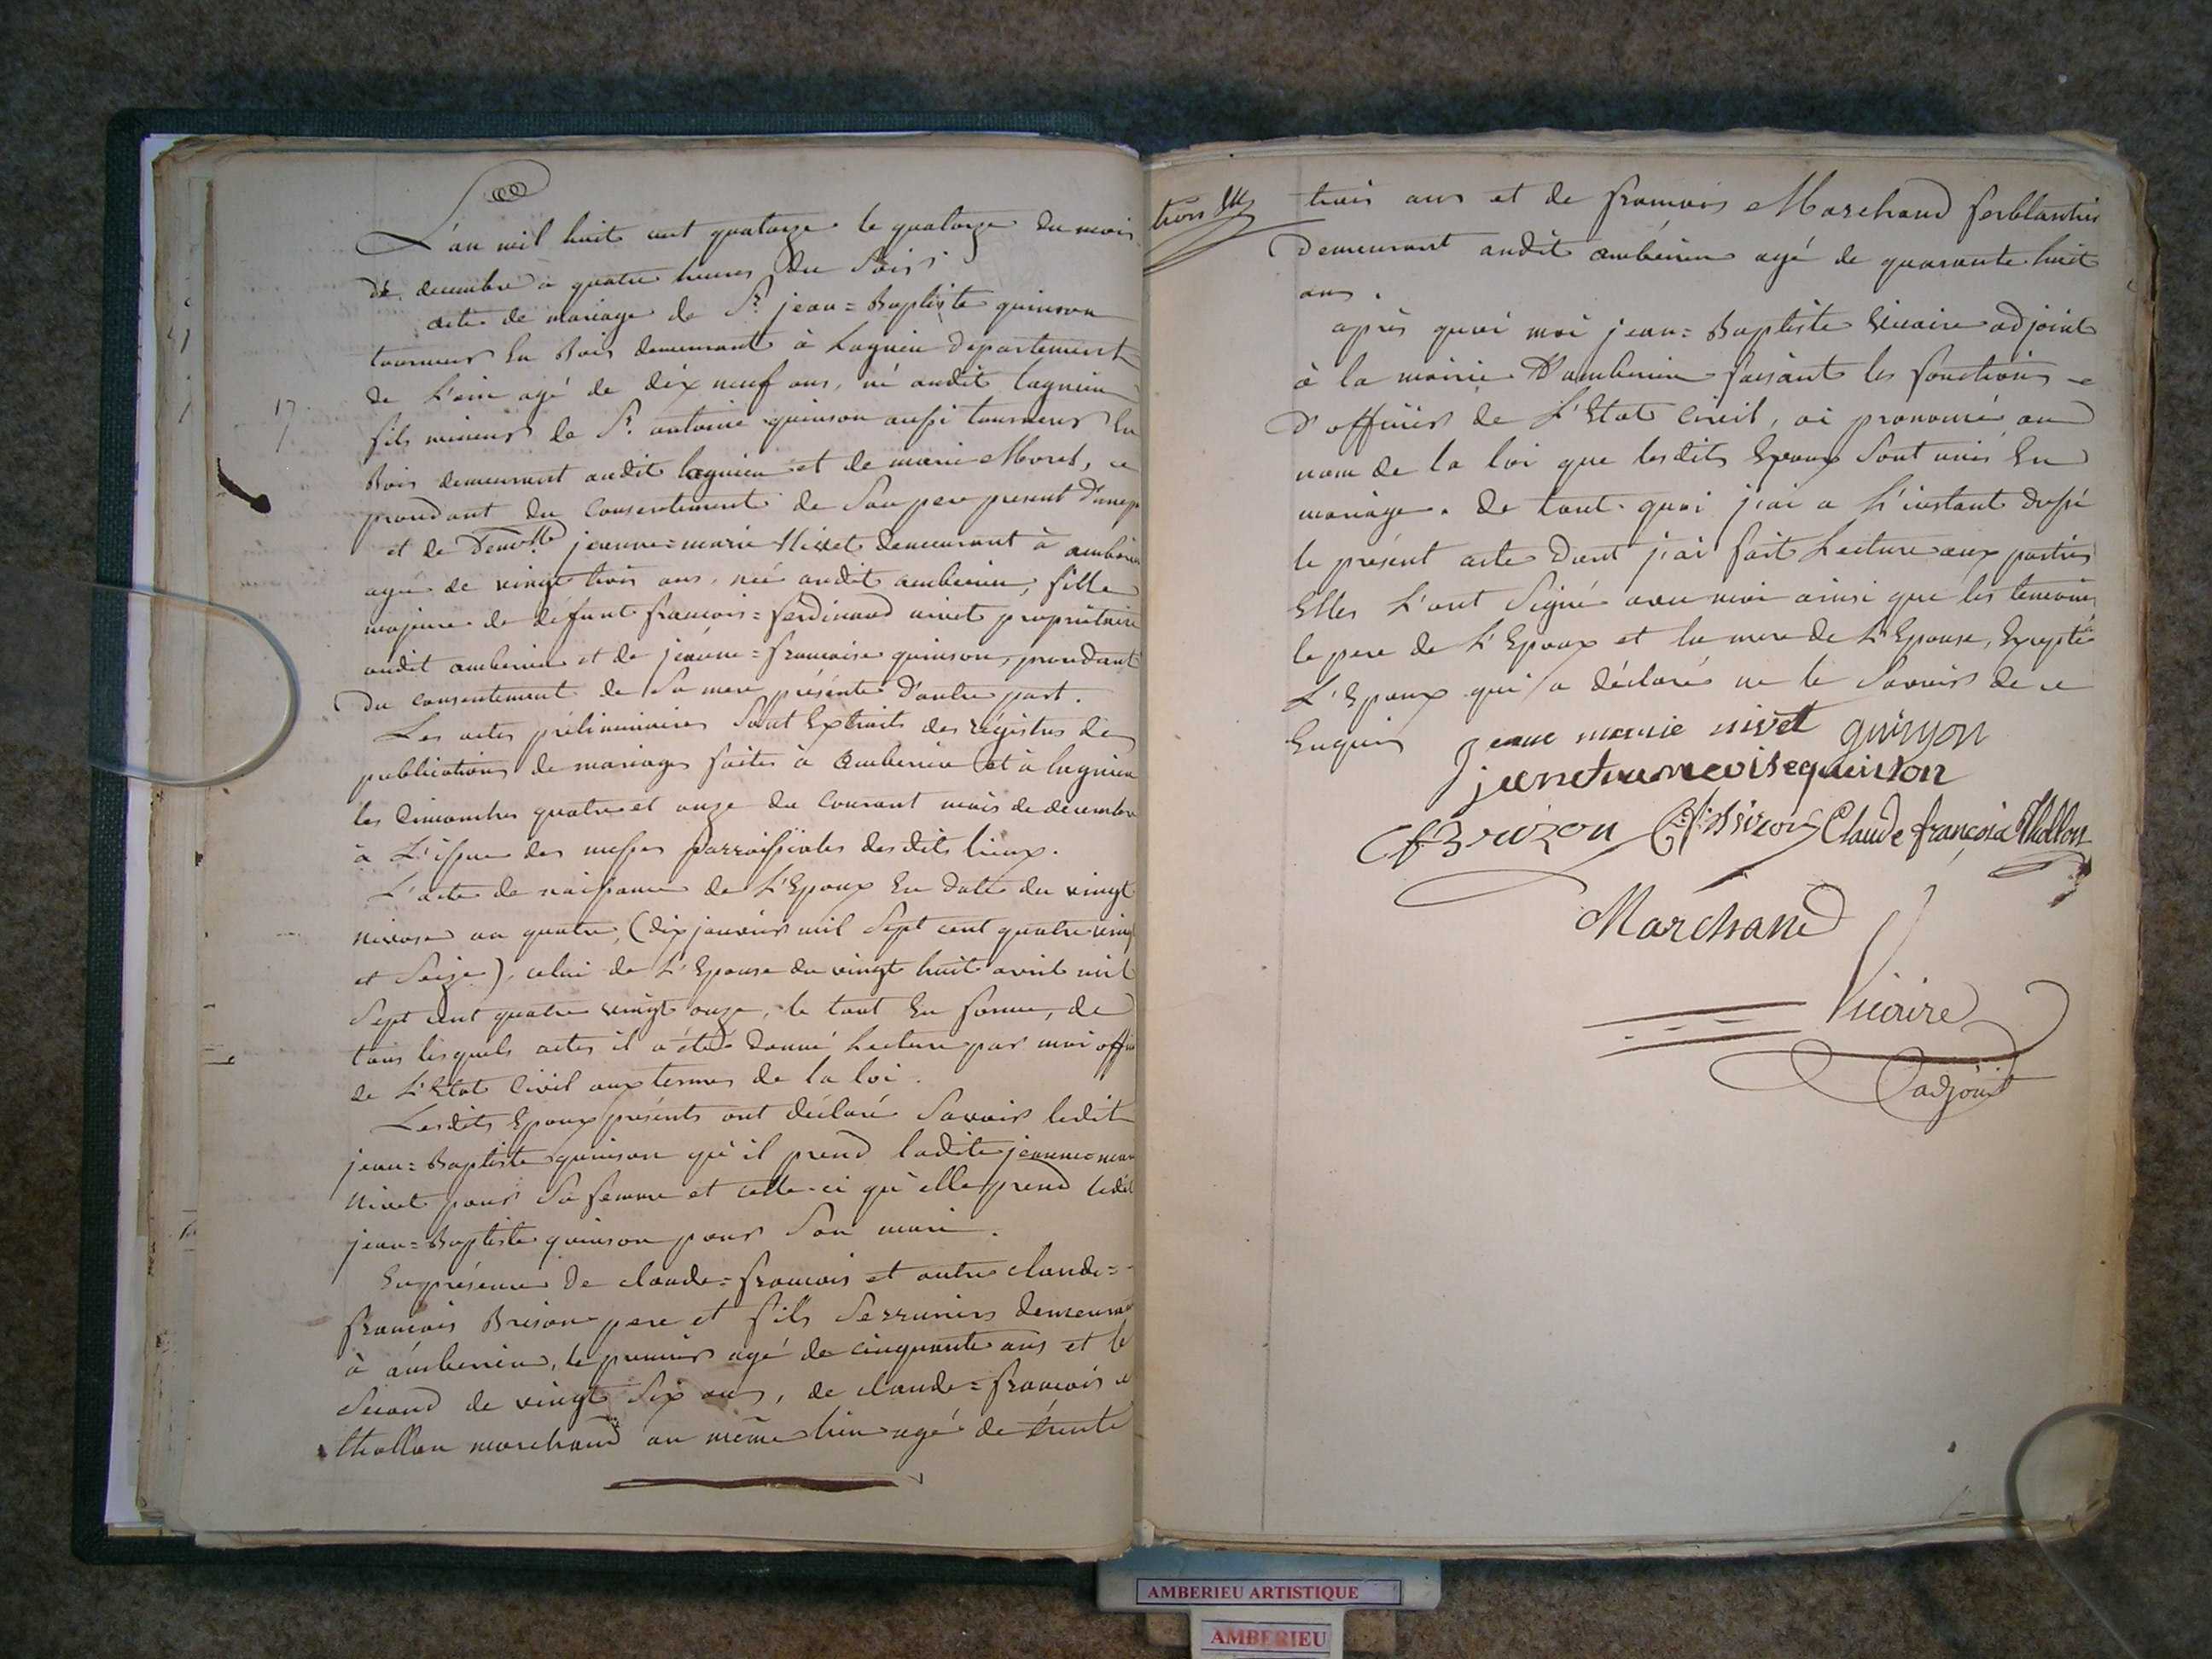 L'an mil huit cent quatorze le quatorze du mois
de decembre a quatre heures du soir
acte de mariage de Sr. jean=Baptiste quinson
tourneur En Bois demeurant à Lagnieu departement
de L'ain agé de dix neuf ans, né audit lagnieu
17
fils mineur de Sr. antoine quinson aussi tourneur En
Bois demeurant audit lagnieu et de marie Moret, ce
procedant du consentement de Son pere present d'une p
et de Demlle jeanne=marie Nivet demeurant à amberieu
agée de vingt trois ans, née audit amberieu, fille
majeure de défunt francois=ferdinand nivet propriétaire
audit amberieu et de jeanne=francoise quinson, procedant
du consentement de Sa mere présente d'autre part.
Les actes préliminaires Sont Extraits des régistres de
publications de mariages faites à amberieu et à lagnieu
les dimanches quatre et onze du courant mois de decembre
à L'issue des messes parroissiales desdits lieux.
L'acte de naissance de L'Epoux En date du vingt
nivose an quatre, (dix janvier mil Sept cent quatre vingt
et Seize), celui de L'Epouse du vingt huit avril mil
Sept cent quatre vingt onze, le tout En forme, de
tous lesquels actes il a été donné Lecture par moi offi
de L'Etat Civil aux termes de la loi.
Lesdits Epoux présents ont déclaré Savoir ledit
jean=Baptiste quinson qu'il prend ladite jeanne mar
Nivet pour Sa femme et celle-ci qu'elle prend ledit
jean=Baptiste quinson pour Son mari.
En présence de claude=francois et autre claude=
francois Brison pere et fils Serruriers demeurant
à amberieu, le premier agé de cinquante ans et le
Second de vingt Six ans, de claude=francois
thollon marchand au même lieu agé de trente
trois ans et de francois Marchand ferblantier
demeurant audit amberieu agé de quarante huit
ans.
après quoi moi jean=Baptiste Vicaire adjoint
à la mairie d'amberieu faisant les fonctions
d'officier de L'Etat Civil, ai prononcé au
nom de la loi que lesdits Epoux Sont unis En
mariage. De tout quoi j'ai a L'instant dressé
le présent acte dont j'ai fait Lecture aux parties
Elles L'ont Signé avec moi ainsi que les temoins
le pere de L'Epoux et la mere de L'Epouse, Excepté
L'Epoux qui a déclaré ne le Savoir de ce
Enquis
jeanne marie nivet quinson
jeane francoise quinson
Cf Brizon Cf Brizon Claude françois Thollon
Marchand
Vicaire
adjoint
AMBERIEU ARTISTIQUE
AMBERIEU